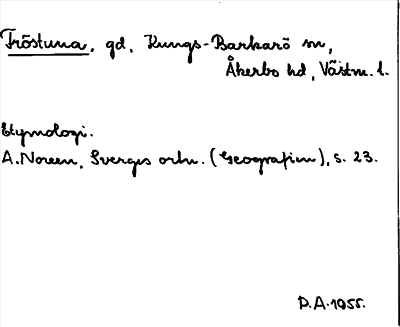 Fröstuna, gd, Kungs-Barkarö sn,
Åkerbo hd, Västm. l.
Etymologi.
A. Noreen, Sverges ortn. (Geografien), s. 23.
D.A. 1955.